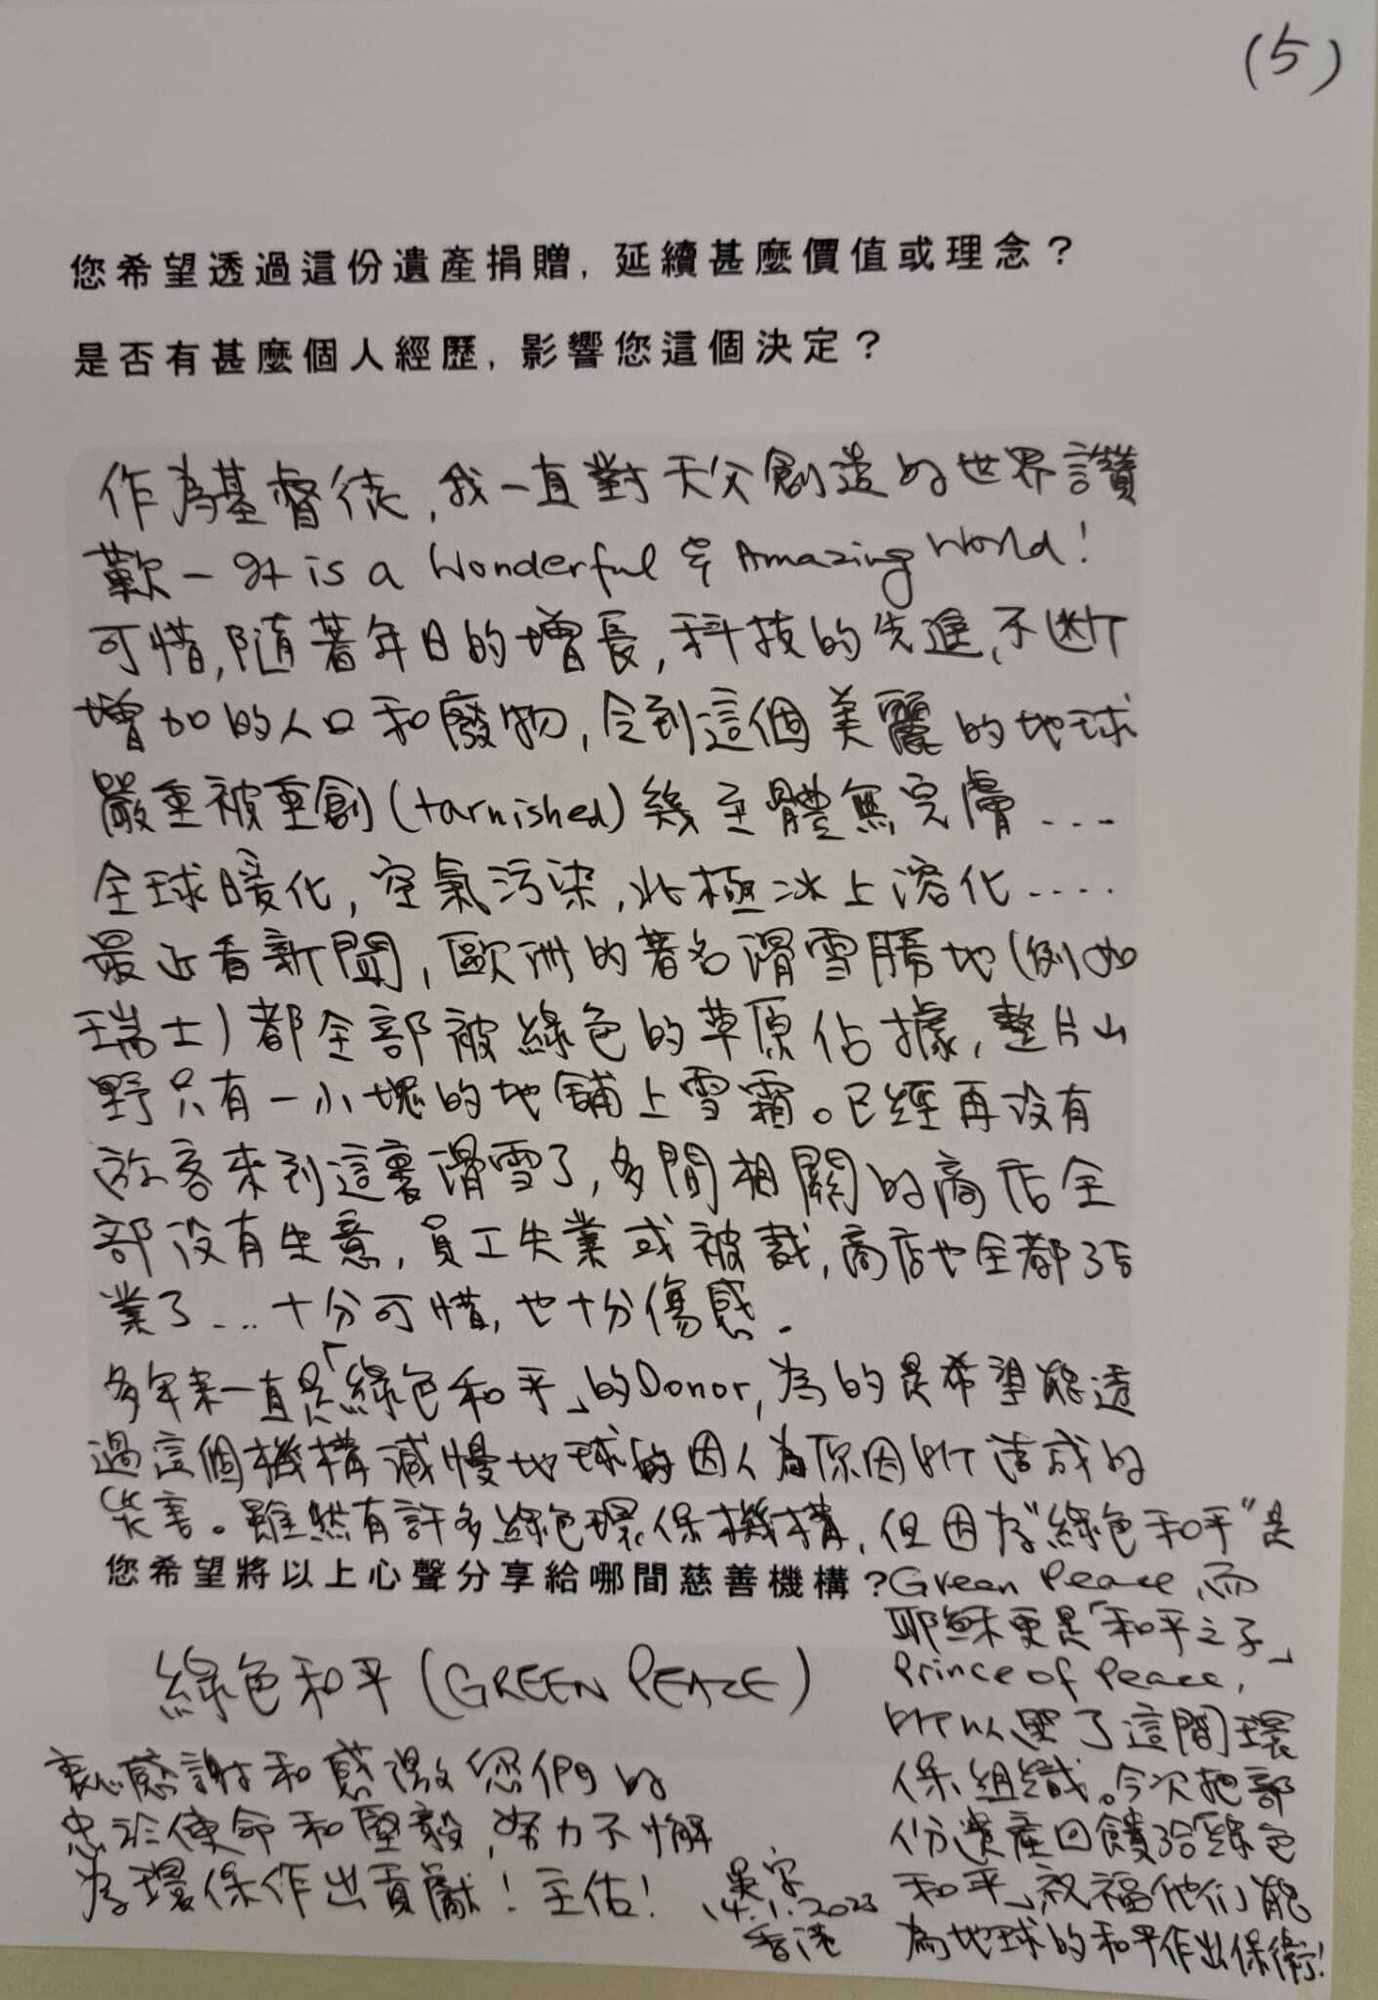 (5)
您希望透過這份遺產捐贈，延續甚麼價值或理念？
是否有甚麼個人經歷，影響您這個決定？
作為基督徒，我一直對天父創造的世界讚
歎－It is a Wonderful & Amazing World!
可惜，隨著年日的增長，科技的先進，不斷
增加的人口和廢物，令到這個美麗的地球
嚴重被重創(tarnished)幾至體無完膚....
全球暖化，空氣污染，北極冰上溶化.....
最近看新聞，歐洲的著名滑雪勝地(例如
瑞士)都全部被綠色的草原佔據，整片山
野只有一小塊的地舖上雪霜。已經再沒有
遊客來到這裏滑雪了，多間相關的商店全
部沒有生意，員工失業或被裁，商店也全都结
業了....十分可惜，也十分傷感.
多年來一直是「綠色和平」的Donor，為的是希望能透
過這個機構減慢地球的因人為原因所造成的
災害。雖然有許多綠色環保機構，但因為"綠色和平"是
Green Peace，而
耶穌更是「和平之子」
Prince of Peace，
所以選了這間環
保組織。今次把部
份遺產回饋给「綠色
和平」，祝福他们能
為地球的和平作出保衛!
您希望將以上心聲分享給哪間慈善機構？
綠色和平(GREEN PEACE)
衷心感謝和感激您們的
忠於使命和堅毅，努力不懈
為環保作出貢獻！主佑！
14.1.2023
香港